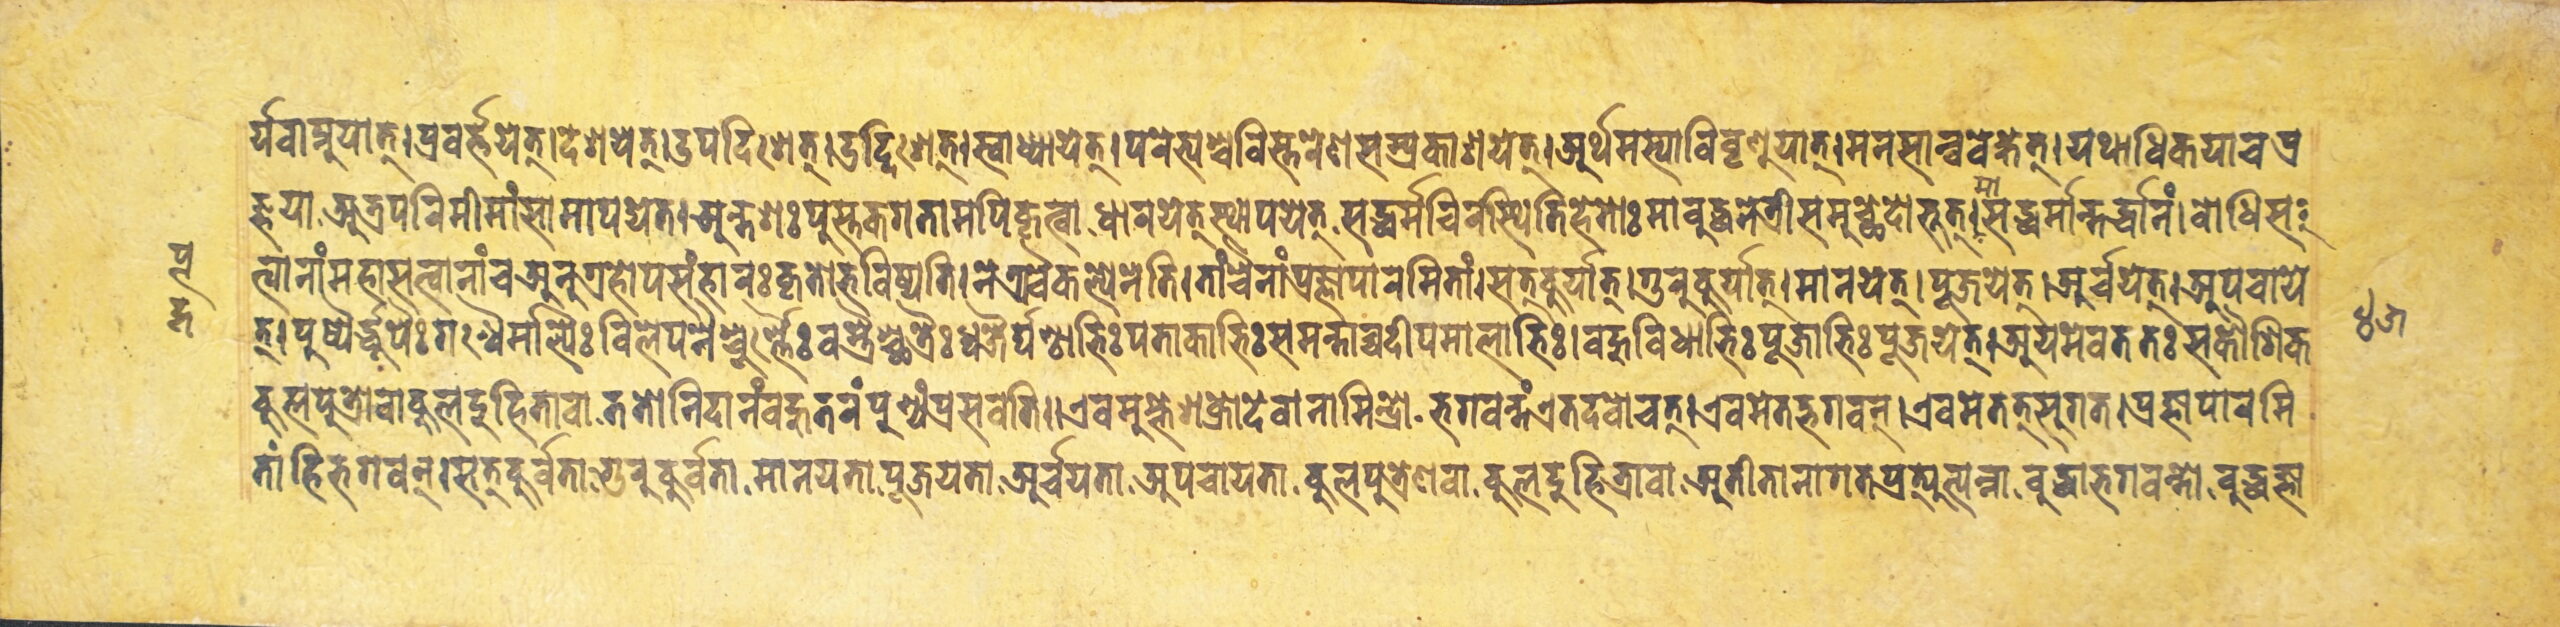 र्यवाप्नुयात्।प्रवर्त्तयेत्।देशयेत्।उपदिशेत्।उद्दिशेत्।स्वाध्यायेत्।परेभ्यश्चविस्तरेणसम्प्रकाशयेत्।अर्थमस्याविवृणुयात्।मनसान्ववेक्षेत्।यथाधिकयाचप्र
ज्ञया अत्रपरिमीमांसामापद्येत।अन्तशःपुस्तकगतामपिकृत्वा धारयेत्स्थापयेत् सद्धर्मचिरस्थितिहेतोःमाबुद्धनेत्रीसमुच्छेदोभूत्।मासद्धर्मान्तर्द्धानं।बोधिस
त्वानांमहासत्वानांचअनुग्रहोपसंहारःकृतोभविष्यति।नेत्र्यवैकल्येनेति।तांचैनांप्रज्ञापारमितां।सत्कुर्यात्।गुरुकुर्यात्।मानयेत्।पूजयेत्।अर्चयेत्।अपचाये
त्।पुष्पैर्द्धूपैःगन्धैर्माल्यैःविलेपनैश्चूर्ण्णैःवस्त्रैश्छत्रैःध्वजैर्घण्टाभिःपताकाभिःसमन्ताच्चदीपमालाभिः।बहुविधाभिःपूजाभिःपूजयेत्।अयमेवततःसकौशिक
कुलपुत्रोवाकुलदुहितावा ततोनिदानंबहुतरंपुण्यंप्रसवति॥एवमुक्तेशक्रोदेवानामिन्द्रो भगवन्तंएतदवोचत्।एवमेतद्भगवन्।एवमेतत्सुगत।प्रज्ञापारमि
तांहिभगवन्।सत्कुर्वता गुरुकुर्वता मानयता पूजयता अर्चयता अपचायता कुलपुत्रेणवा कुलदुहित्रावा अतीतानागतप्रत्युत्पन्ना बुद्धाभगवन्तो बुद्धज्ञा